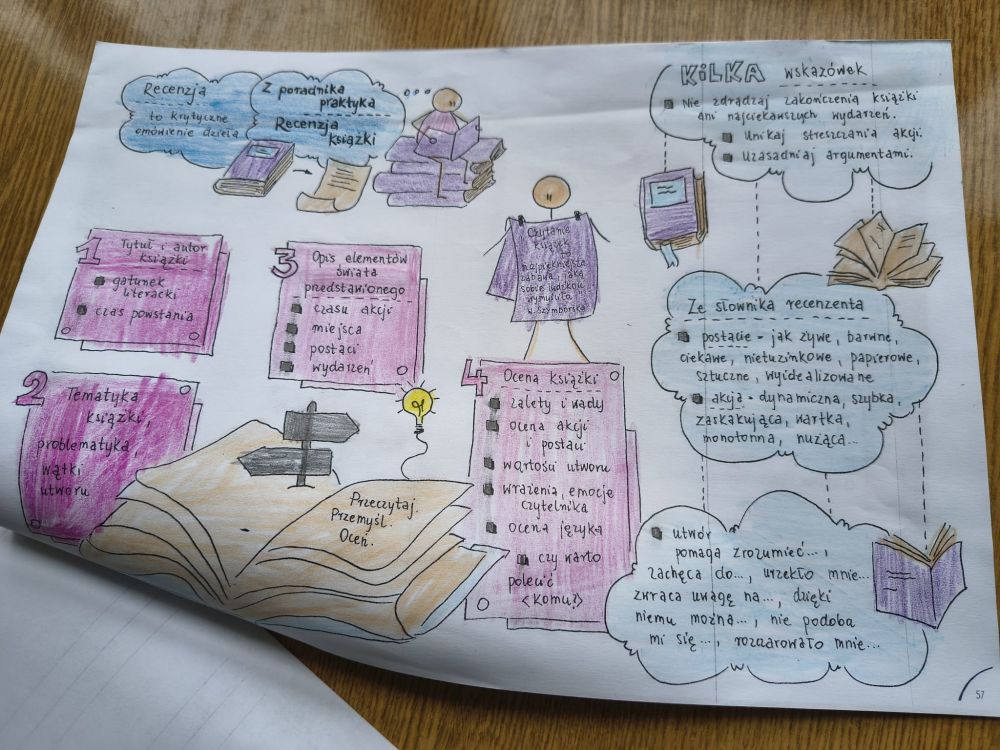 Recenzja
to krytyczne
omówienie dzieła
Z poradnika
praktyka
Recenzja
książki
1
Tytuł i autor
książki
gatunek
literacki
czas powstania
2
Tematyka
książki,
problematyka,
wątki
utworu
3
Opis elementów
świata
przedstawionego
czasu akcji
miejsca
postaci
wydarzeń
Czytanie
książek
to
najpiękniejsza
zabawa, jaką
sobie ludzkość
wymyśliła"
W. Szymborska
4
Ocena książki
zalety i wady
ocena akcji
i postaci
wartości utworu
wrażenia, emocje
czytelnika
ocena języka
czy warto
polecić
<Komu?>
Przeczytaj.
Przemyśl.
Oceń.
KILKA wskazówek
Nie zdradzaj zakończenia książki
ani najciekawszych wydarzeń.
Unikaj streszczania akcji.
Uzasadniaj argumentami.
Ze słownika recenzenta
postacie - jak żywe, barwne,
ciekawe, nietuzinkowe, papierowe,
sztuczne, wyidealizowane
akcja - dynamiczna, szybka,
zaskakująca, wartka,
monotonna, nużąca...
utwór
pomaga zrozumieć...,
zachęca do..., urzekło mnie...
zwraca uwagę na..., dzięki
niemu można..., nie podoba
mi się..., rozczarowało mnie...
57